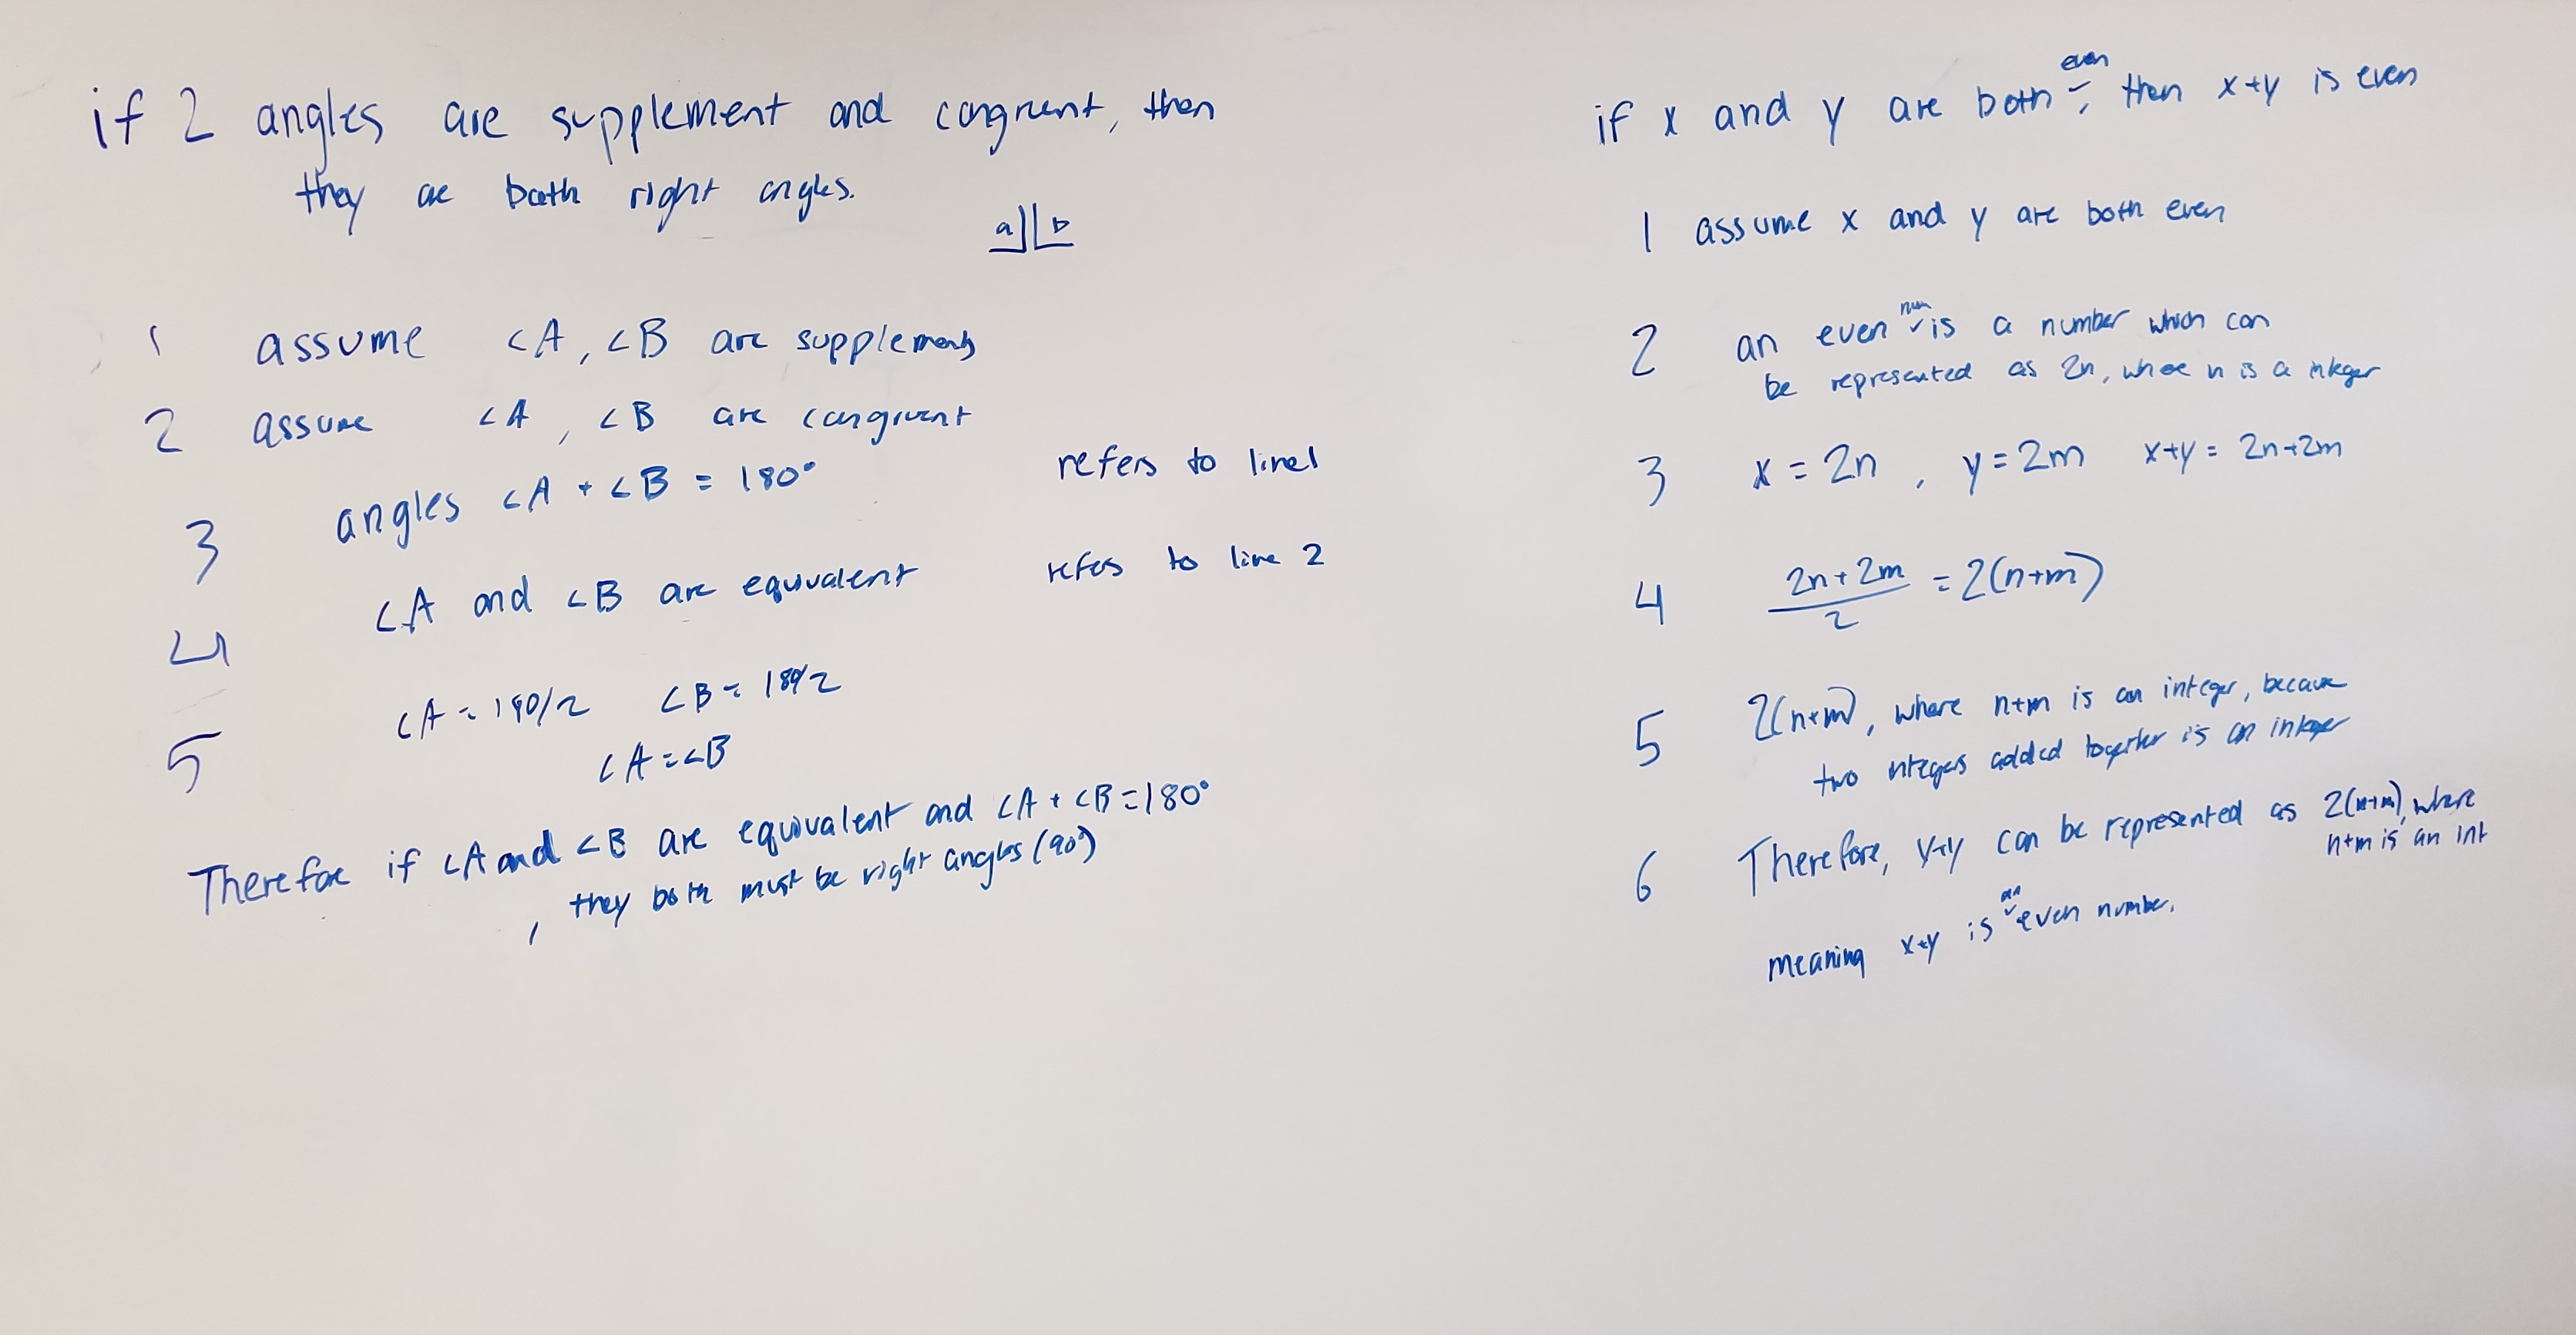 if 2 angles are supplement and congruent, then
they are both right angles.
a b
1 assume ∠A, ∠B are supplements
2 assume ∠A, ∠B are congruent
3 angles ∠A + ∠B = 180° refers to line 1
4 ∠A and ∠B are equivalent refers to line 2
5 ∠A = 180/2 ∠B = 180/2
∠A = ∠B
Therefore if ∠A and ∠B are equivalent and ∠A + ∠B = 180°
, they both must be right angles (90°)
if x and y are both even, then x+y is even
1 assume x and y are both even
2 an even num is a number which can
be represented as 2n, where n is a integer
3 x = 2n, y = 2m x+y = 2n+2m
4 (2n+2m)/2 = 2(n+m)
5 2(n+m), where n+m is an integer, because
two integers added together is an integer
6 Therefore, x+y can be represented as 2(n+m), where
n+m is an int
meaning x+y is an even number.